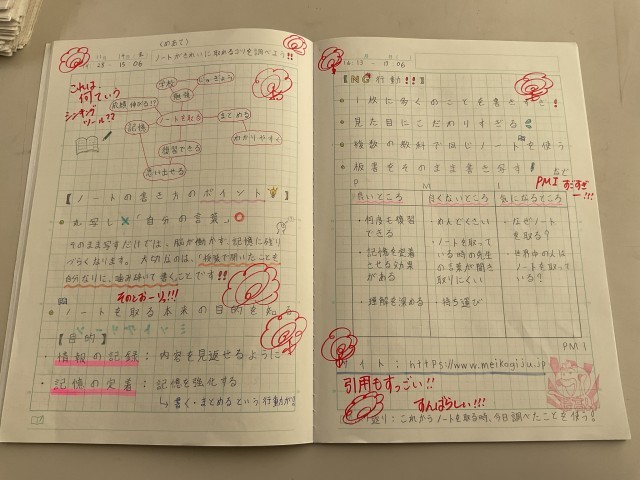 (めあて)
11月 19日(水)
ノートがきれいに取れるコツを調べよう!!
15:06
これは
何ていう
シンキング
ツール??
学校
勉強
じゅぎょう
成績伸がる!?
ノートを取る
まとめる
わかりやすく
記憶
復習できる
思い出せる
【ノートの書き方のポイント】
丸写し✕「自分の言葉」○
そのまま写すだけでは、脳が働かず、記憶に残り
づらくなります。大切なのは、「授業で聞いたことを
自分なりに、噛み砕いて書くことです!!
そのとおーり!!!
ノートを取る本来の目的を知る
【目的】
・情報の記録:内容を見返せるように
・記憶の定着:記憶を強化する
↳書く・まとめるという行動が
15:06
【NG行動!!】
1枚に多くのことを書きすぎ!
見た目にこだわりすぎる
複数の教科で同じノートを使う
板書をそのまま書き写す!
など
PMI すごすぎ
ー!!!
P M I
良いところ 良くないところ 気になるところ
・何度も復習
できる
・記憶を定着
させる効果
がある
・理解を深める
・めんどくさい
・ノートを取って
いる時の先生
の言葉が聞き
取りにくい
・持ち運び
・なぜノート
を取る?
・世界中の人は
ノートを取って
いる?
PMI
サイト:https://www.meikogiju.jp
引用もすっごい!!
すんばらしい!!!
り:これからノートを取る時、今日調べたことを使う!